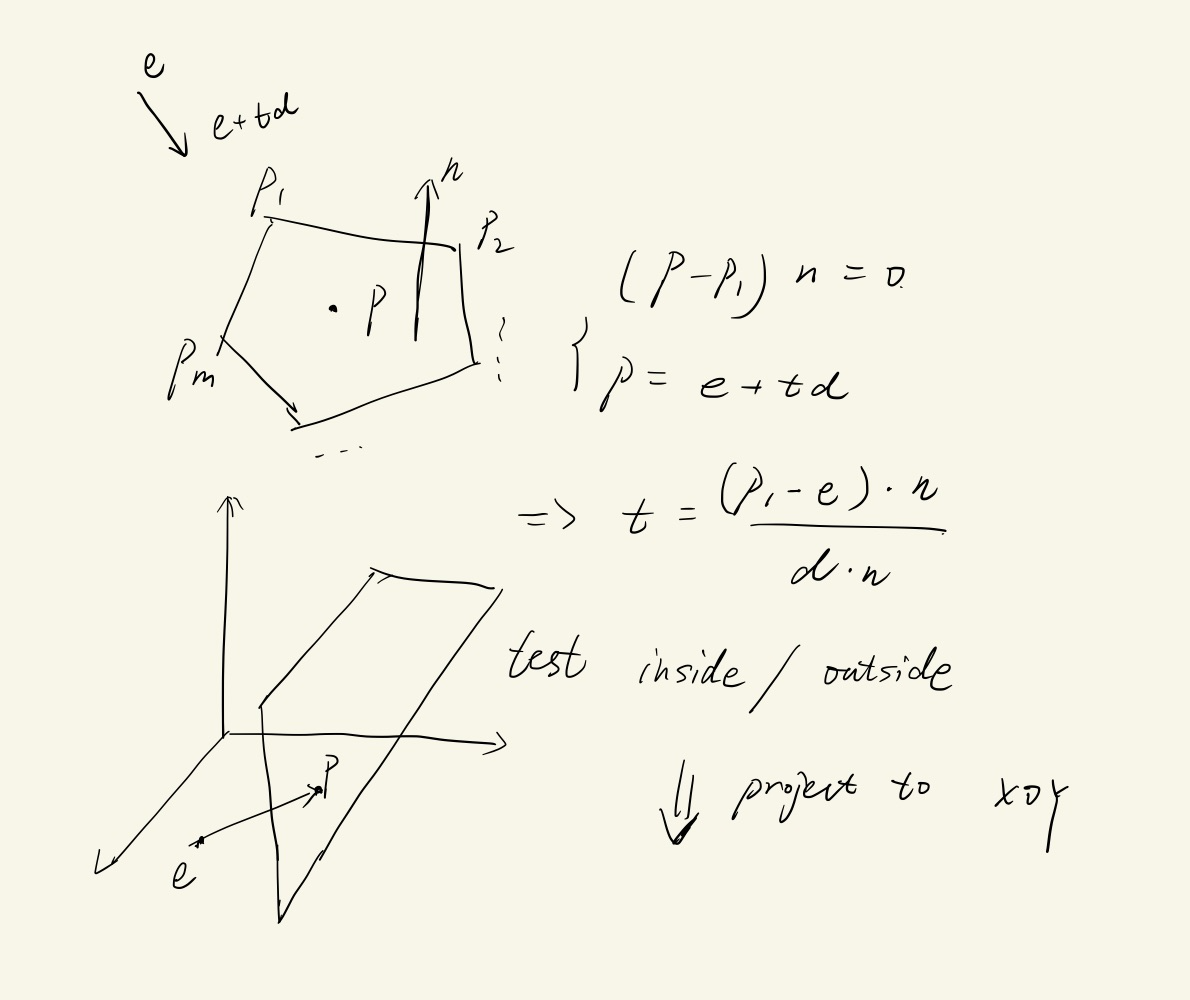 e
e+td
P₁
n
P₂
P
Pₘ
...
(P-P₁) n = 0
{ P = e+td
=> t = (P₁-e)·n / d·n
test inside/outside
⇓ project to xoy
P
e